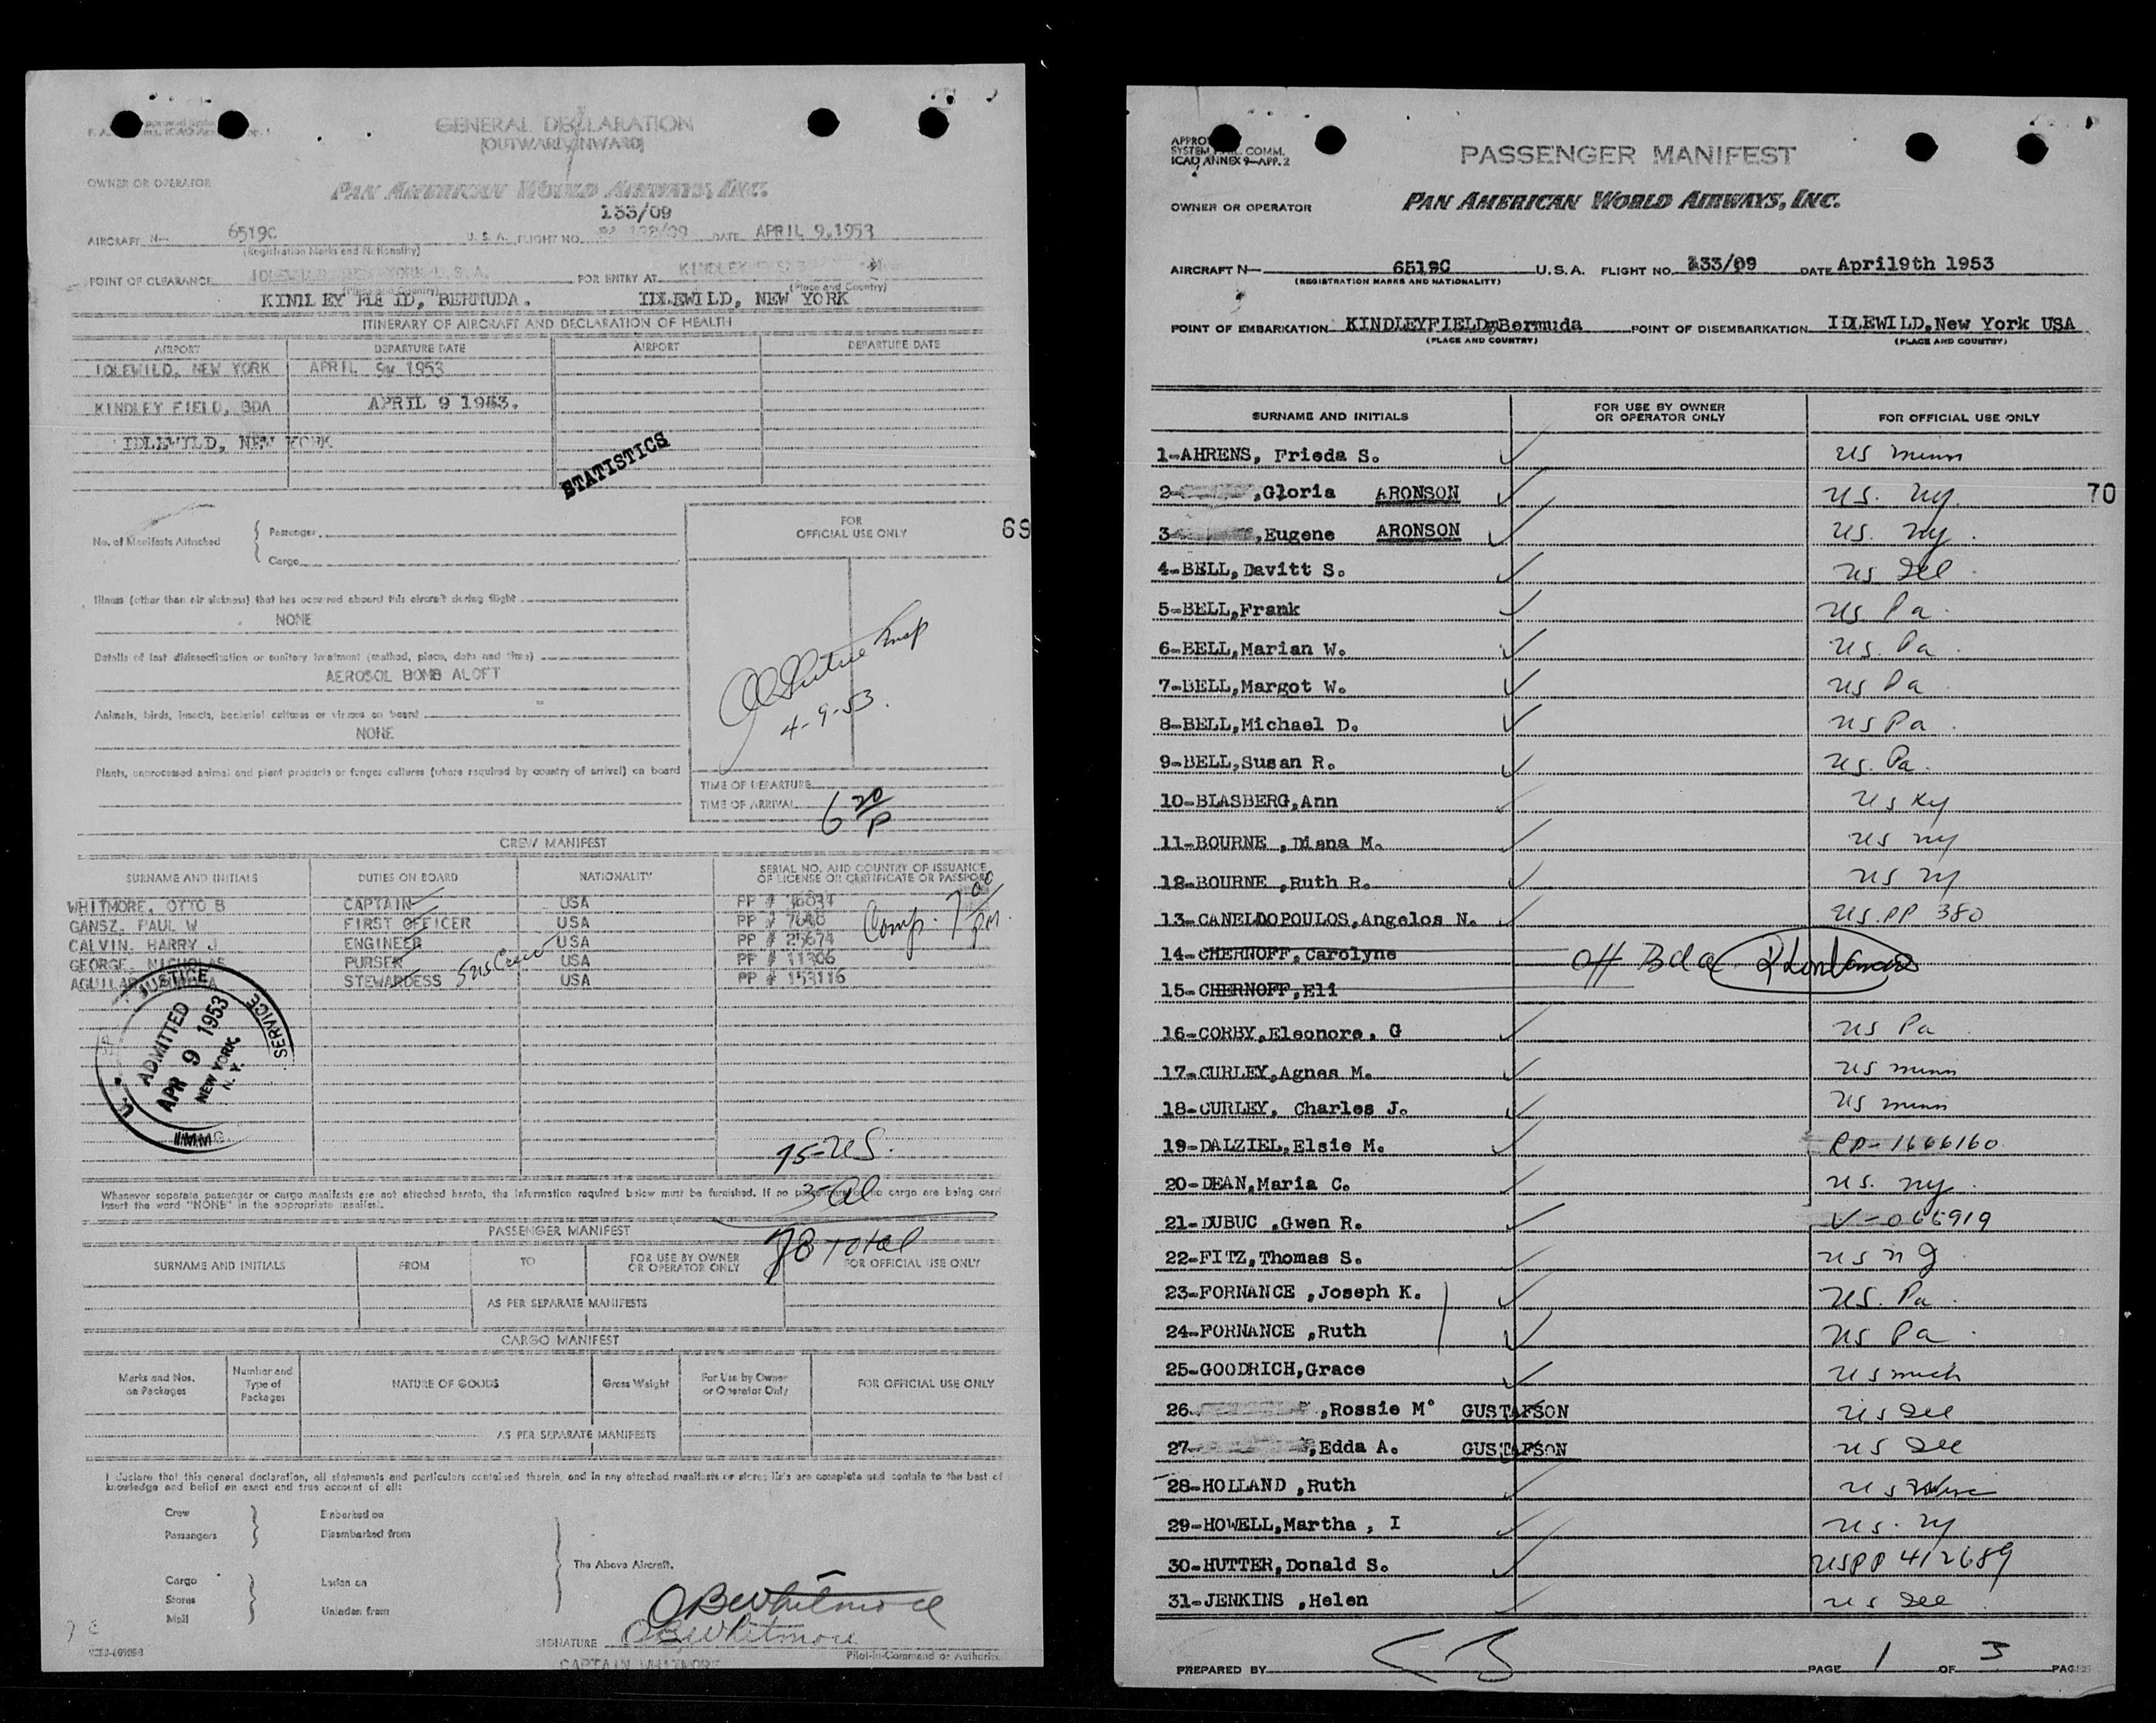 GENERAL DECLARATION
(OUTWARD/INWARD)
OWNER OR OPERATOR
PAN AMERICAN WORLD AIRWAYS, INC.
133/09
AIRCRAFT N— 6519C U. S. A. FLIGHT NO. DATE APRIL 9, 1953
(Registration Marks and Nationality)
POINT OF CLEARANCE FOR ENTRY AT KINDLEY
(Place and Country) (Place and Country)
KINDLEY FIELD, BERMUDA. IDLEWILD, NEW YORK
ITINERARY OF AIRCRAFT AND DECLARATION OF HEALTH
AIRPORT DEPARTURE DATE AIRPORT DEPARTURE DATE
IDLEWILD, NEW YORK APRIL 9 1953
KINDLEY FIELD, BDA APRIL 9 1953.
IDLEWILD, NEW YORK
STATISTICS
No. of Manifests Attached { Passenger
{ Cargo
FOR
OFFICIAL USE ONLY
69
Illness (other than air sickness) that has occurred aboard this aircraft during flight
NONE
Details of last disinsectization or sanitary treatment (method, place, date and time)
AEROSOL BOMB ALOFT
4-9-53.
Animals, birds, insects, bacterial cultures or viruses on board
NONE
Plants, unprocessed animal and plant products or fungus cultures (where required by country of arrival) on board
TIME OF DEPARTURE
TIME OF ARRIVAL 6 20 P
CREW MANIFEST
SURNAME AND INITIALS DUTIES ON BOARD NATIONALITY SERIAL NO. AND COUNTRY OF ISSUANCE
OF LICENSE OR CERTIFICATE OR PASSPORT
WHITMORE, OTTO B CAPTAIN USA PP #
GANSZ, PAUL W FIRST OFFICER USA PP #
CALVIN, HARRY J ENGINEER USA PP # 25674
GEORGE, NICHOLAS PURSER USA PP # 11306
AGUILAR STEWARDESS USA PP # 153116
Comp. 7 00 PM.
U. S. JUSTICE SERVICE
ADMITTED
APR 9 1953
NEW YORK,
N. Y.
IMMIG.
75-US.
3-Al
78 Total
Whenever separate passenger or cargo manifests are not attached hereto, the information required below must be furnished. If no passengers or no cargo are being carri
insert the word "NONE" in the appropriate manifest.
PASSENGER MANIFEST
SURNAME AND INITIALS FROM TO FOR USE BY OWNER
OR OPERATOR ONLY FOR OFFICIAL USE ONLY
AS PER SEPARATE MANIFESTS
CARGO MANIFEST
Marks and Nos.
on Packages Number and
Type of
Packages NATURE OF GOODS Gross Weight For Use by Owner
or Operator Only FOR OFFICIAL USE ONLY
AS PER SEPARATE MANIFESTS
I declare that this general declaration, all statements and particulars contained therein, and in any attached manifests or stores lists are complete and contain to the best of
knowledge and belief an exact and true account of all:
Crew Embarked on
Passengers Disembarked from
The Above Aircraft.
Cargo Laden on
Stores
Mail Unladen from
OBWhitmore
SIGNATURE OBWhitmore
CAPTAIN WHITMORE Pilot-in-Command or Authoriz
APPRO
SYSTEM COMM.
ICAO ANNEX 9—APP. 2
PASSENGER MANIFEST
OWNER OR OPERATOR PAN AMERICAN WORLD AIRWAYS, INC.
AIRCRAFT N— 6519C U.S.A. FLIGHT NO. 133/09 DATE April9th 1953
(REGISTRATION MARKS AND NATIONALITY)
POINT OF EMBARKATION KINDLEYFIELD,Bermuda POINT OF DISEMBARKATION IDLEWILD,New York USA
(PLACE AND COUNTRY) (PLACE AND COUNTRY)
SURNAME AND INITIALS FOR USE BY OWNER
OR OPERATOR ONLY FOR OFFICIAL USE ONLY
1-AHRENS, Frieda S. US minn
2- ,Gloria ARONSON US. ny. 70
3- ,Eugene ARONSON US. ny.
4-BELL,Davitt S. US Del
5-BELL,Frank US Pa.
6-BELL,Marian W. US. Pa.
7-BELL,Margot W. US Pa
8-BELL,Michael D. US Pa.
9-BELL,Susan R. US. Pa.
10-BLASBERG,Ann US Ky
11-BOURNE ,Diana M. US ny
12-BOURNE ,Ruth R. US ny
13-CANELDOPOULOS,Angelos N. US.PP 380
14-CHERNOFF, Carolyne off Bda
15-CHERNOFF,Eli
16-CORBY,Eleonore. G US Pa
17-CURLEY,Agnes M. US minn
18-CURLEY, Charles J. US minn
19-DALZIEL,Elsie M. PP-1666160
20-DEAN,Maria C. US. ny.
21-DUBUC ,Gwen R. V-066919
22-FITZ,Thomas S. US n J
23-FORNANCE ,Joseph K. US. Pa.
24-FORNANCE ,Ruth US Pa.
25-GOODRICH,Grace US mich
26- ,Rossie M. GUSTAFSON US Del
27- ,Edda A. GUSTAFSON US Del
28-HOLLAND ,Ruth US
29-HOWELL,Martha , I US. ny
30-HUTTER,Donald S. USPP 412689
31-JENKINS ,Helen US Del
PREPARED BY PAGE 1 OF 3 PAGES